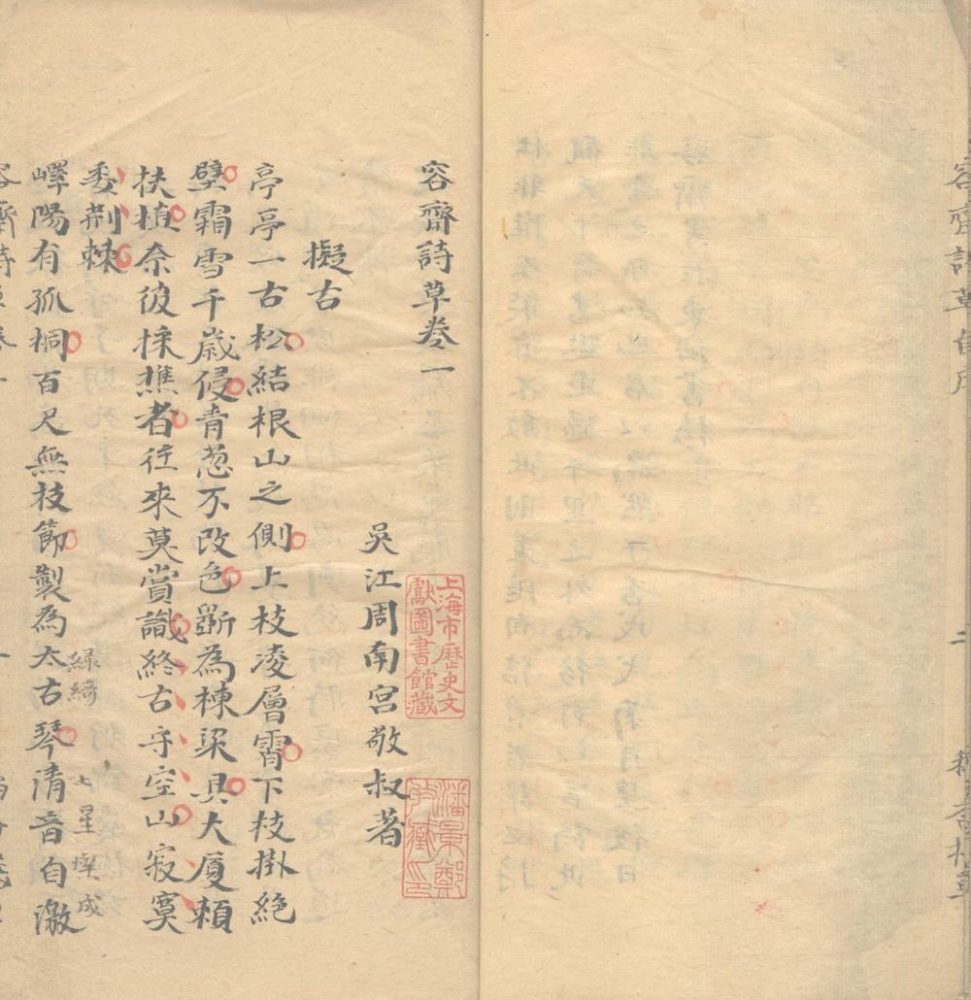 容齋詩草自序
二
容齋詩草卷一
吳江周南宮敬叔著
上海市歷史文
獻圖書館藏
潘景鄭
擬古
亭亭一古松結根山之側上枝凌層霄下枝掛絕
壁霜雪千歲侵青葱不改色斵為棟梁具大厦賴
扶植奈彼採樵者往來莫賞識終古守空山寂寞
委荆棘
嶧陽有孤桐百尺無枝節製為太古琴清音自激
綠綺
七星 成
容齋詩草卷一